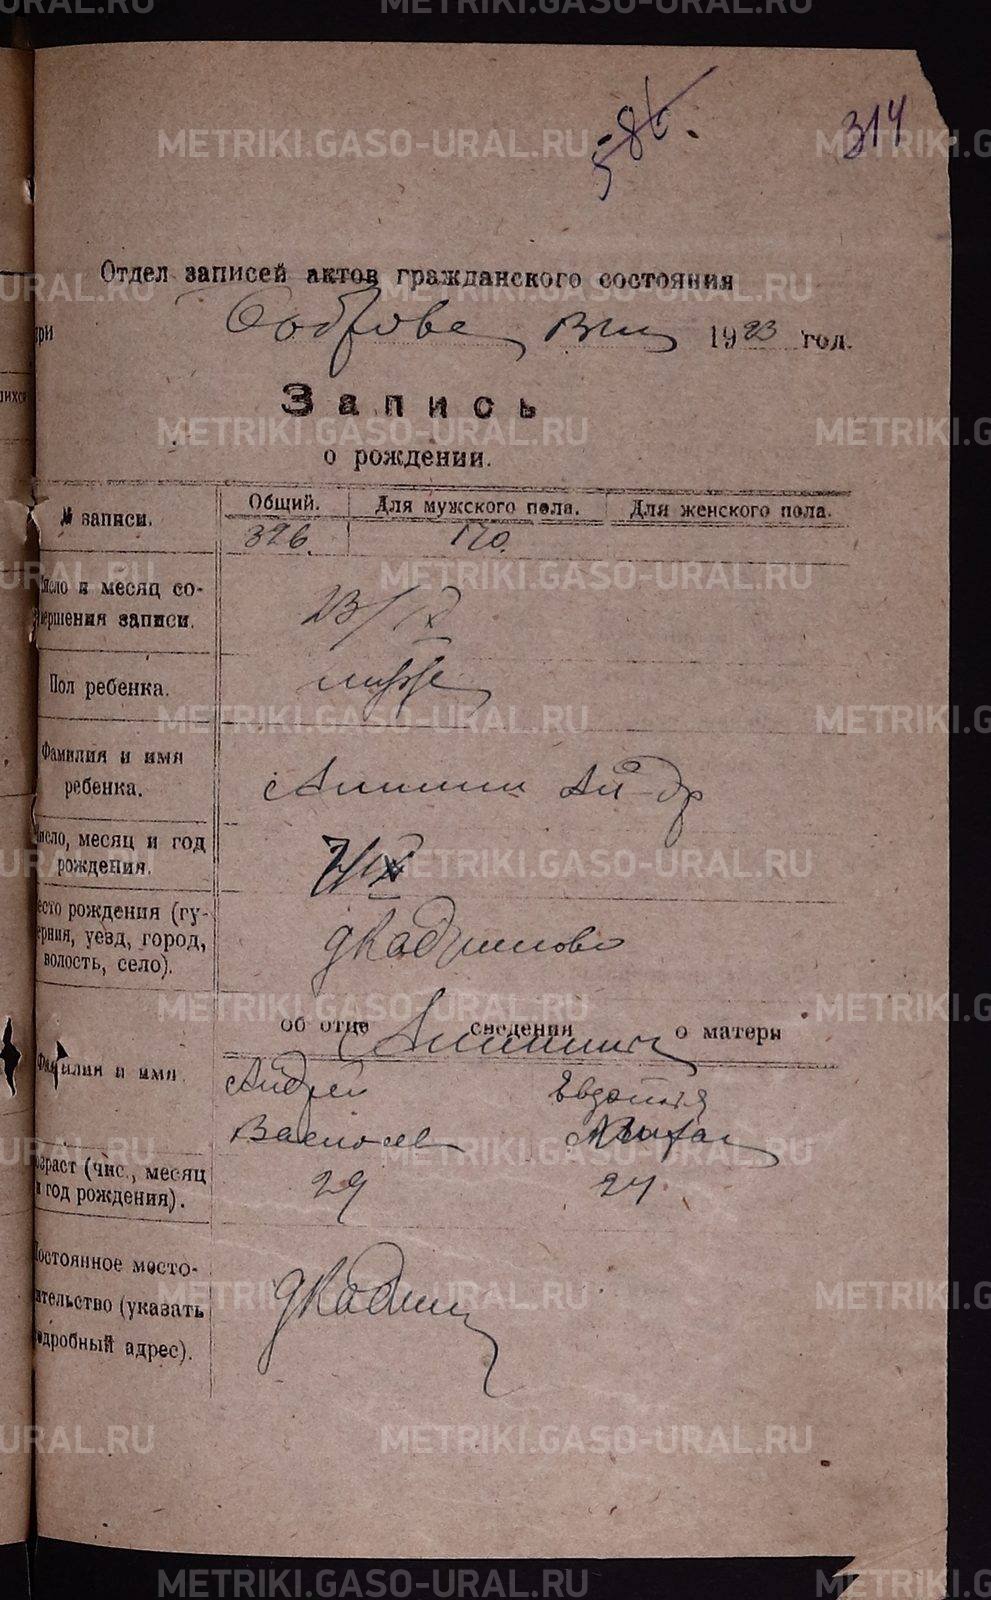 586.
314
Отдел записей актов гражданского состояния
при Бобровс Вик 1923 год.
Запись
о рождении.
№ записи. Общий. Для мужского пола. Для женского пола.
326. 170.
Число и месяц со-
вершения записи. 23/IX
Пол ребенка. мужс
Фамилия и имя
ребенка. Ан-др
Число, месяц и год
рождения. 7/IX
место рождения (гу-
ерния, уезд, город,
волость, село). д Кадниково
об отце сведения о матери
Фамилия и имя
Андрей Евдокия
Василев Михаил
возраст (чис., месяц
и год рождения). 29 24
Постоянное место-
ительство (указать
одробный адрес). д Кадник
METRIKI.GASO-URAL.RU